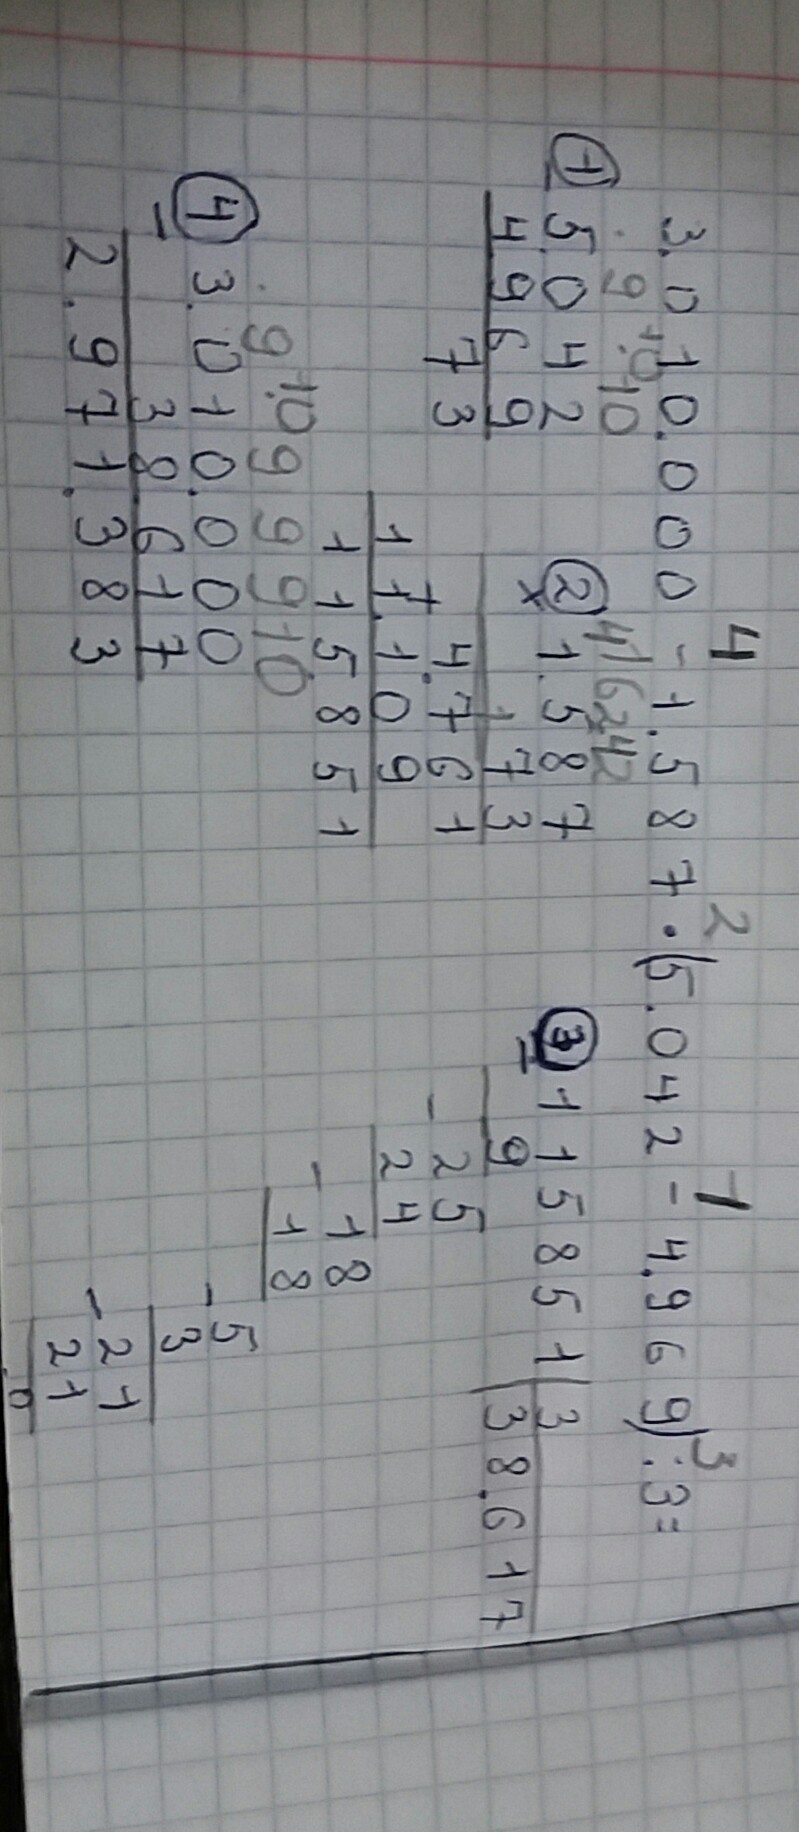 4 2 1 3
3.010.000 - 1.587 · (5.042 - 4.969) : 3 =
①
9 10 10
- 5.042
4969
73
②
41 62 42
x 1.587
73
4.761
11.109
115851
③
- 115851 | 3
9 38.617
- 25
24
- 18
18
- 5
3
- 21
21
0
④
9 10 9 9 9 10
- 3.010.000
38617
2.971.383